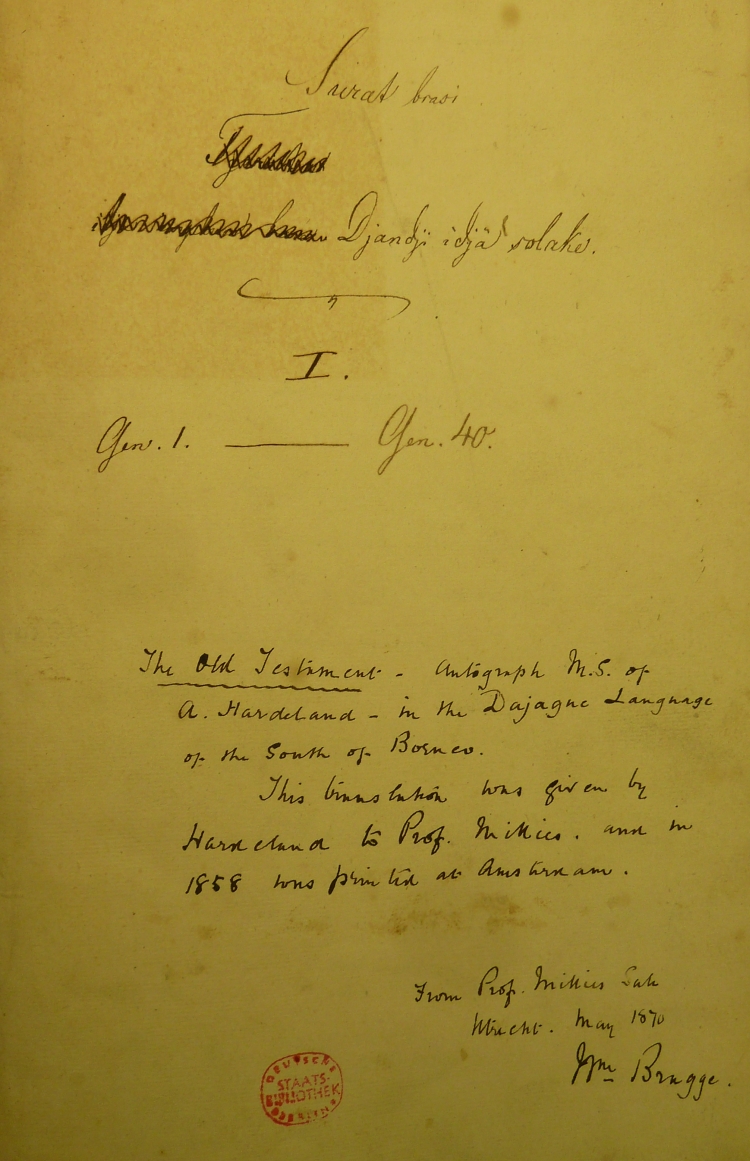 Surat brasi
Djandji idjä solake.
I.
Gen. 1. — Gen. 40.
The Old Testament - Autograph M.S. of
A. Hardeland - in the Dajague Language
of the South of Borneo.
This translation was given by
Hardeland to Prof. Millies. and in
1858 was printed at Amsterdam.
From Prof. Millies Sale
Utrecht. May 1870
Wm Bragge.
DEUTSCHE
STAATS-
BIBLIOTHEK
BERLIN